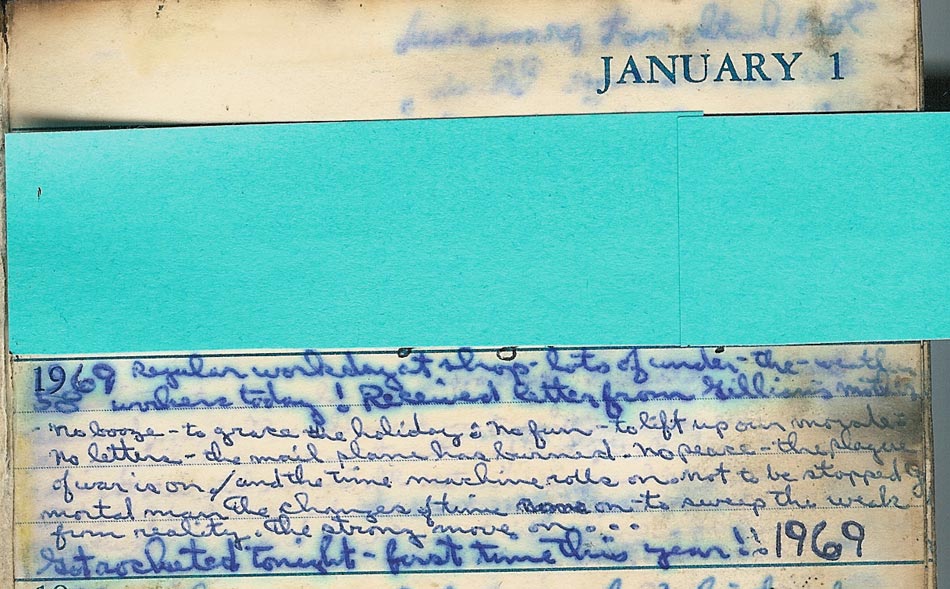 JANUARY 1
1969 Regular workday at shop - lots of under-the-weather
workers today! Received letter from Gillian's mother
No booze - to grace the holiday; No fun - to lift up our morale;
No letters - the mail plane has burned. No peace - the plague
of war is on / and the time machine rolls on not to be stopped by
mortal man The changes of time move on - to sweep the weak
from reality. The strong move on . . .
Get rocketed tonight - first time this year!! 1969